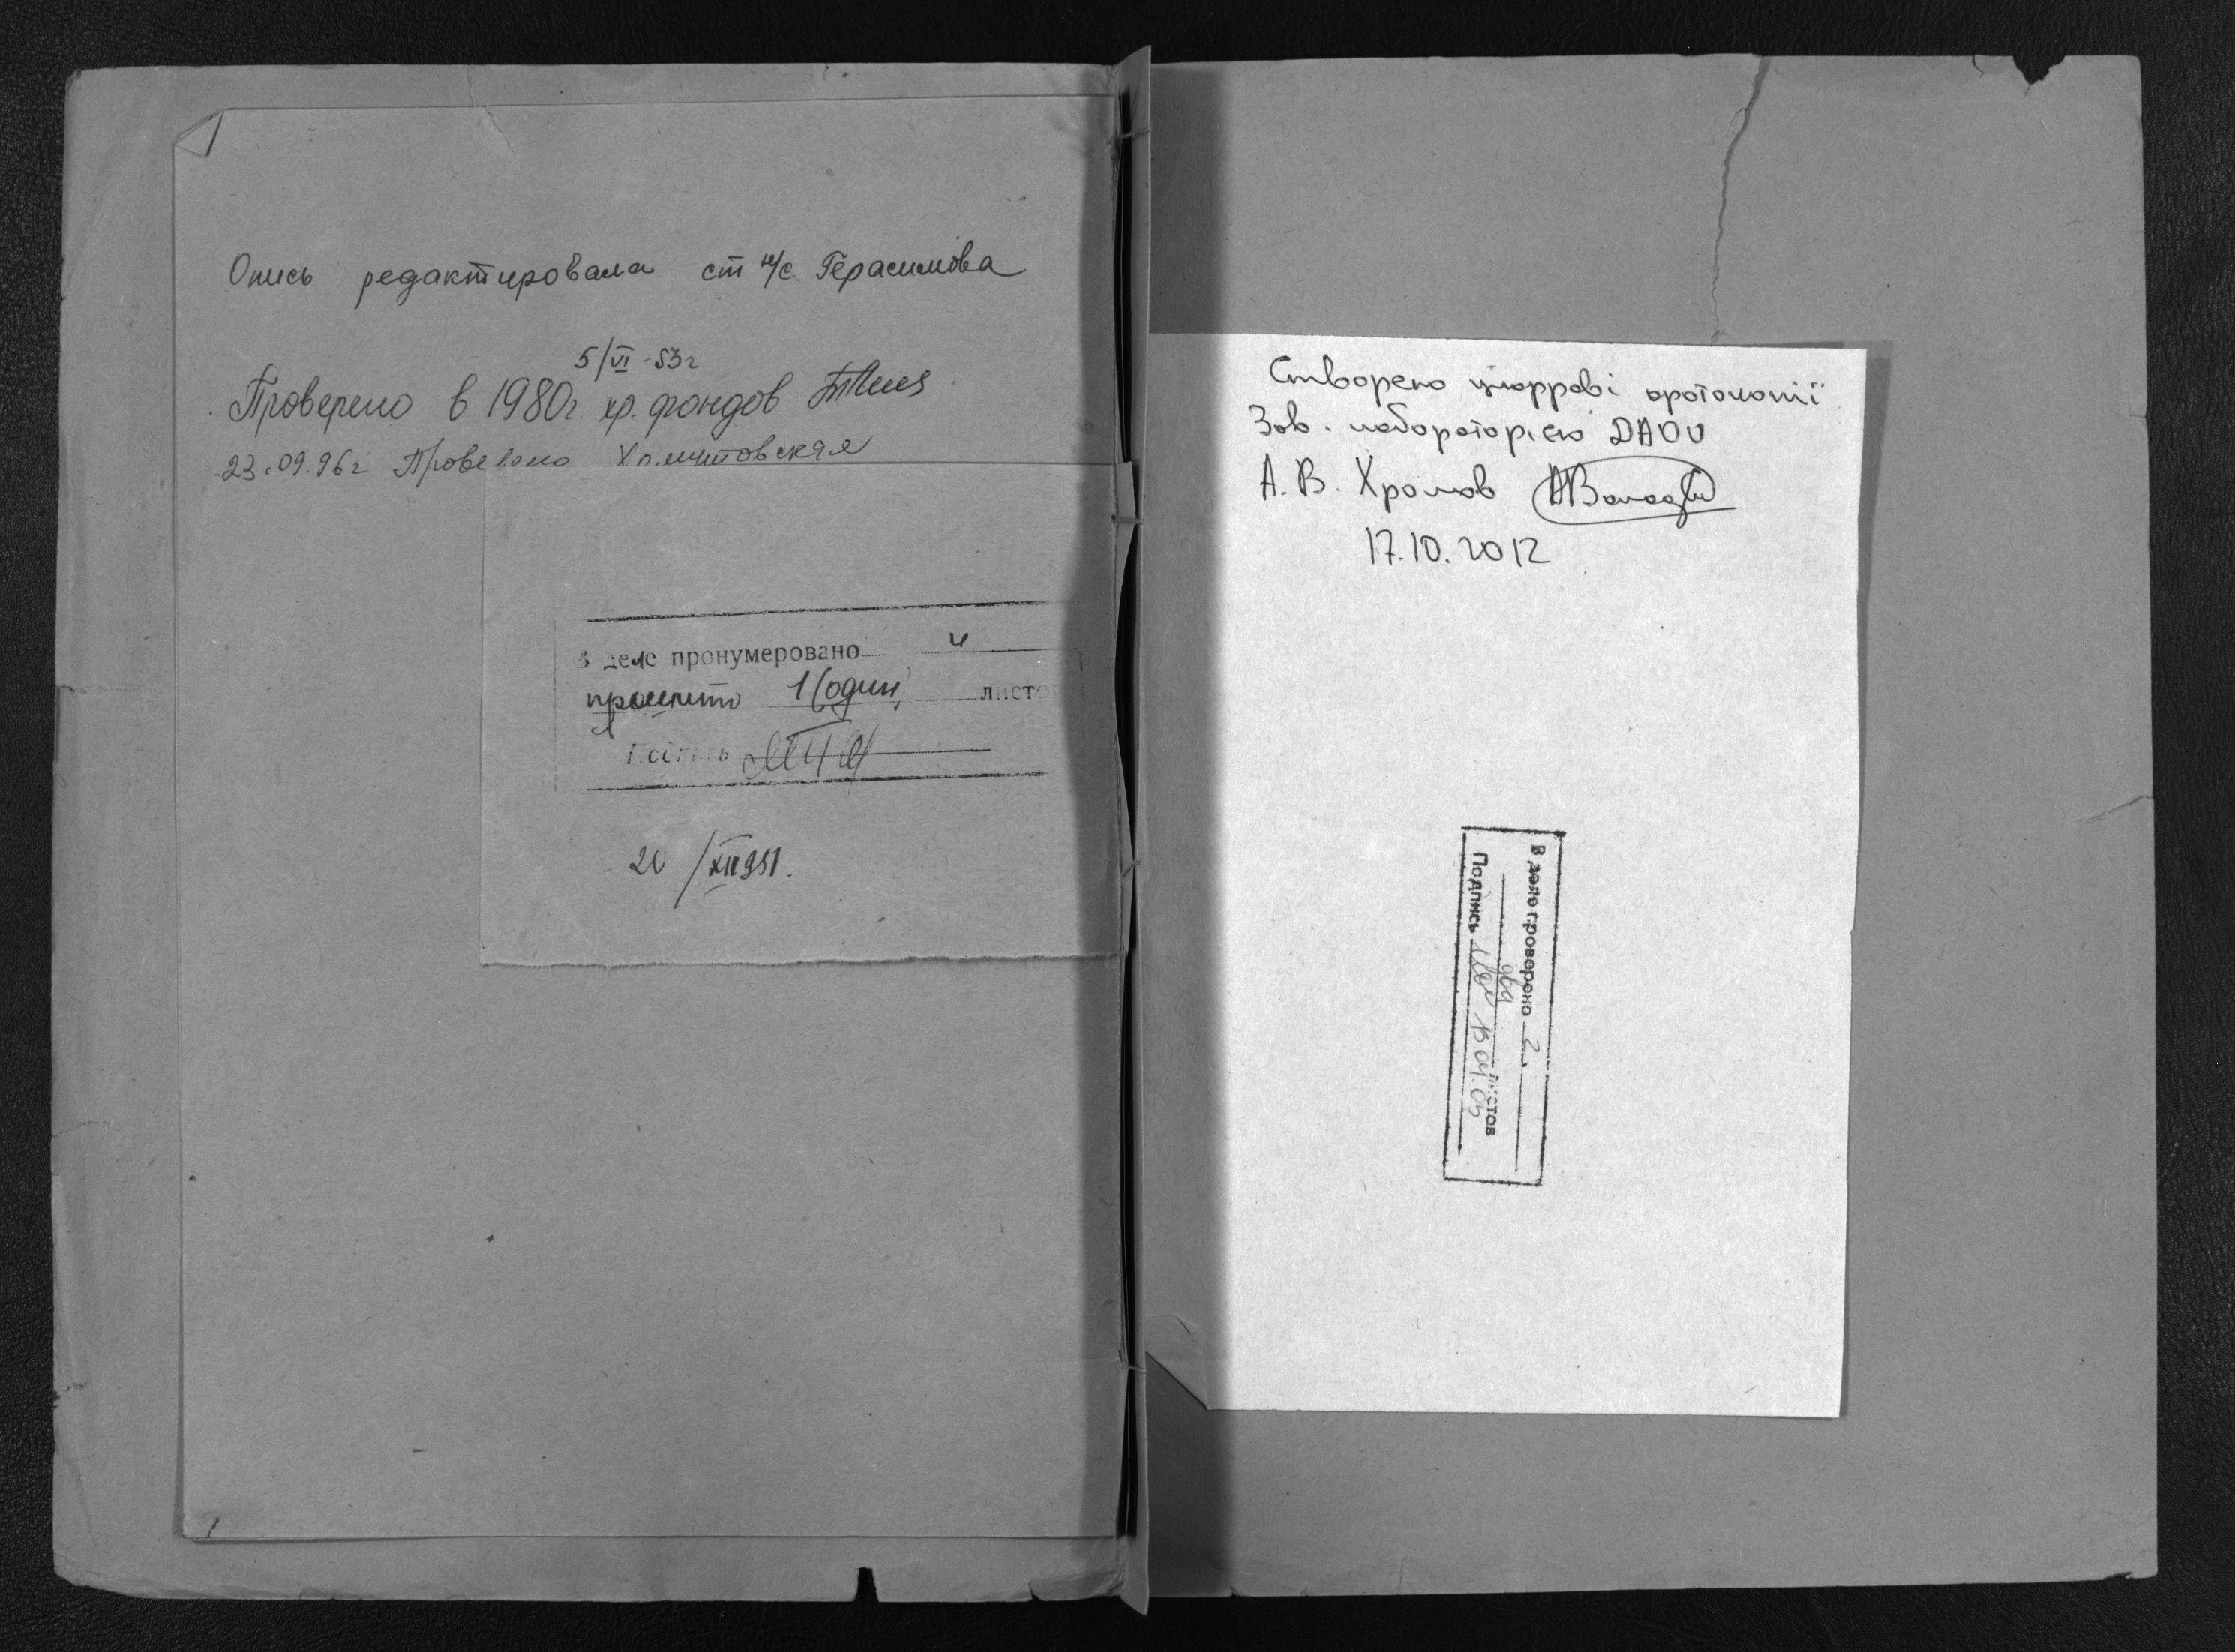 Опись редактировала ст н/с Герасимова
5/VI-53г
Проверено в 1980г. хр. фондов
23.09.96г Проверено Хомутовская
В деле пронумеровано и
прошито 1 (один) листов
Подпись
/XII 951.
Створено цифрові фотокопії
Зав. лабораторією ДАОО
А. В. Хромов
17.10.2012
В деле проверено 2
два листов
Подпись